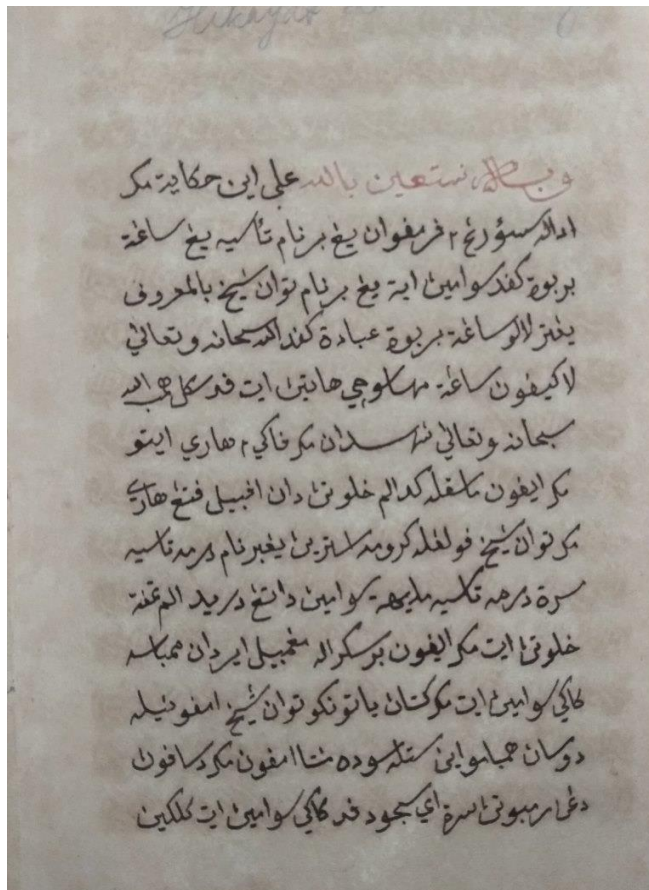 Hikayat
وبه نستعين بالله على اين حكاية مك
اداله سؤرڠ٢ فرمفوان يڠ برنام تأسيه يڠ ساڠة
بربوة كفد سوامين ايت يڠ برنام توان شيخ بالمعروف
يڠ ترلالو ساڠة بربوة عبادة كفد الله سبحانه وتعالى
لاكيفون ساڠة سوچي هاتين ايت فد سكل الله
سبحانه وتعالى مك فاكي٢ هاري ايتو
مك ايفون ماسقله كدالم خلوتن دان افبيل فتڠ هاري
مك توان شيخ فولڠله كرومه استرين يڠبرنام درمه تاسيه
سرة درمه تاسيه مليهة سوامين داتڠ دريد الم تمفة
خلوتن ايت مك اييفون برسكراله مڠمبيل اير دان ممباسه
كاكي سوامين ايت مك كتان ياتونكو توان شيخ امفونيله
دوسان همبامو اين ستله سوده منتا امفون مك دسافون
دڠن رمبوتن سرة اي سجود فد كاكي سوامين ايت كلكين